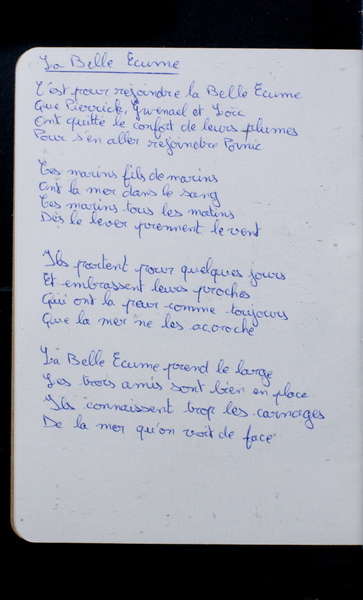 La Belle Ecume
C'est pour rejoindre la Belle Ecume
Que Pierrick, Gwenael et Loïc
Ont quitté le confort de leurs plumes
Pour s'en aller rejoindre Pornic
Ces marins fils de marins
Ont la mer dans le sang
Ces marins tous les matins
Dès le lever prennent le vent
Ils partent pour quelques jours
Et embrassent leurs proches
Qui ont la peur comme toujours
Que la mer ne les accroche
La Belle Ecume prend le large
Les trois amis sont bien en place
Ils connaissent trop les carnages
De la mer qu'on voit de face